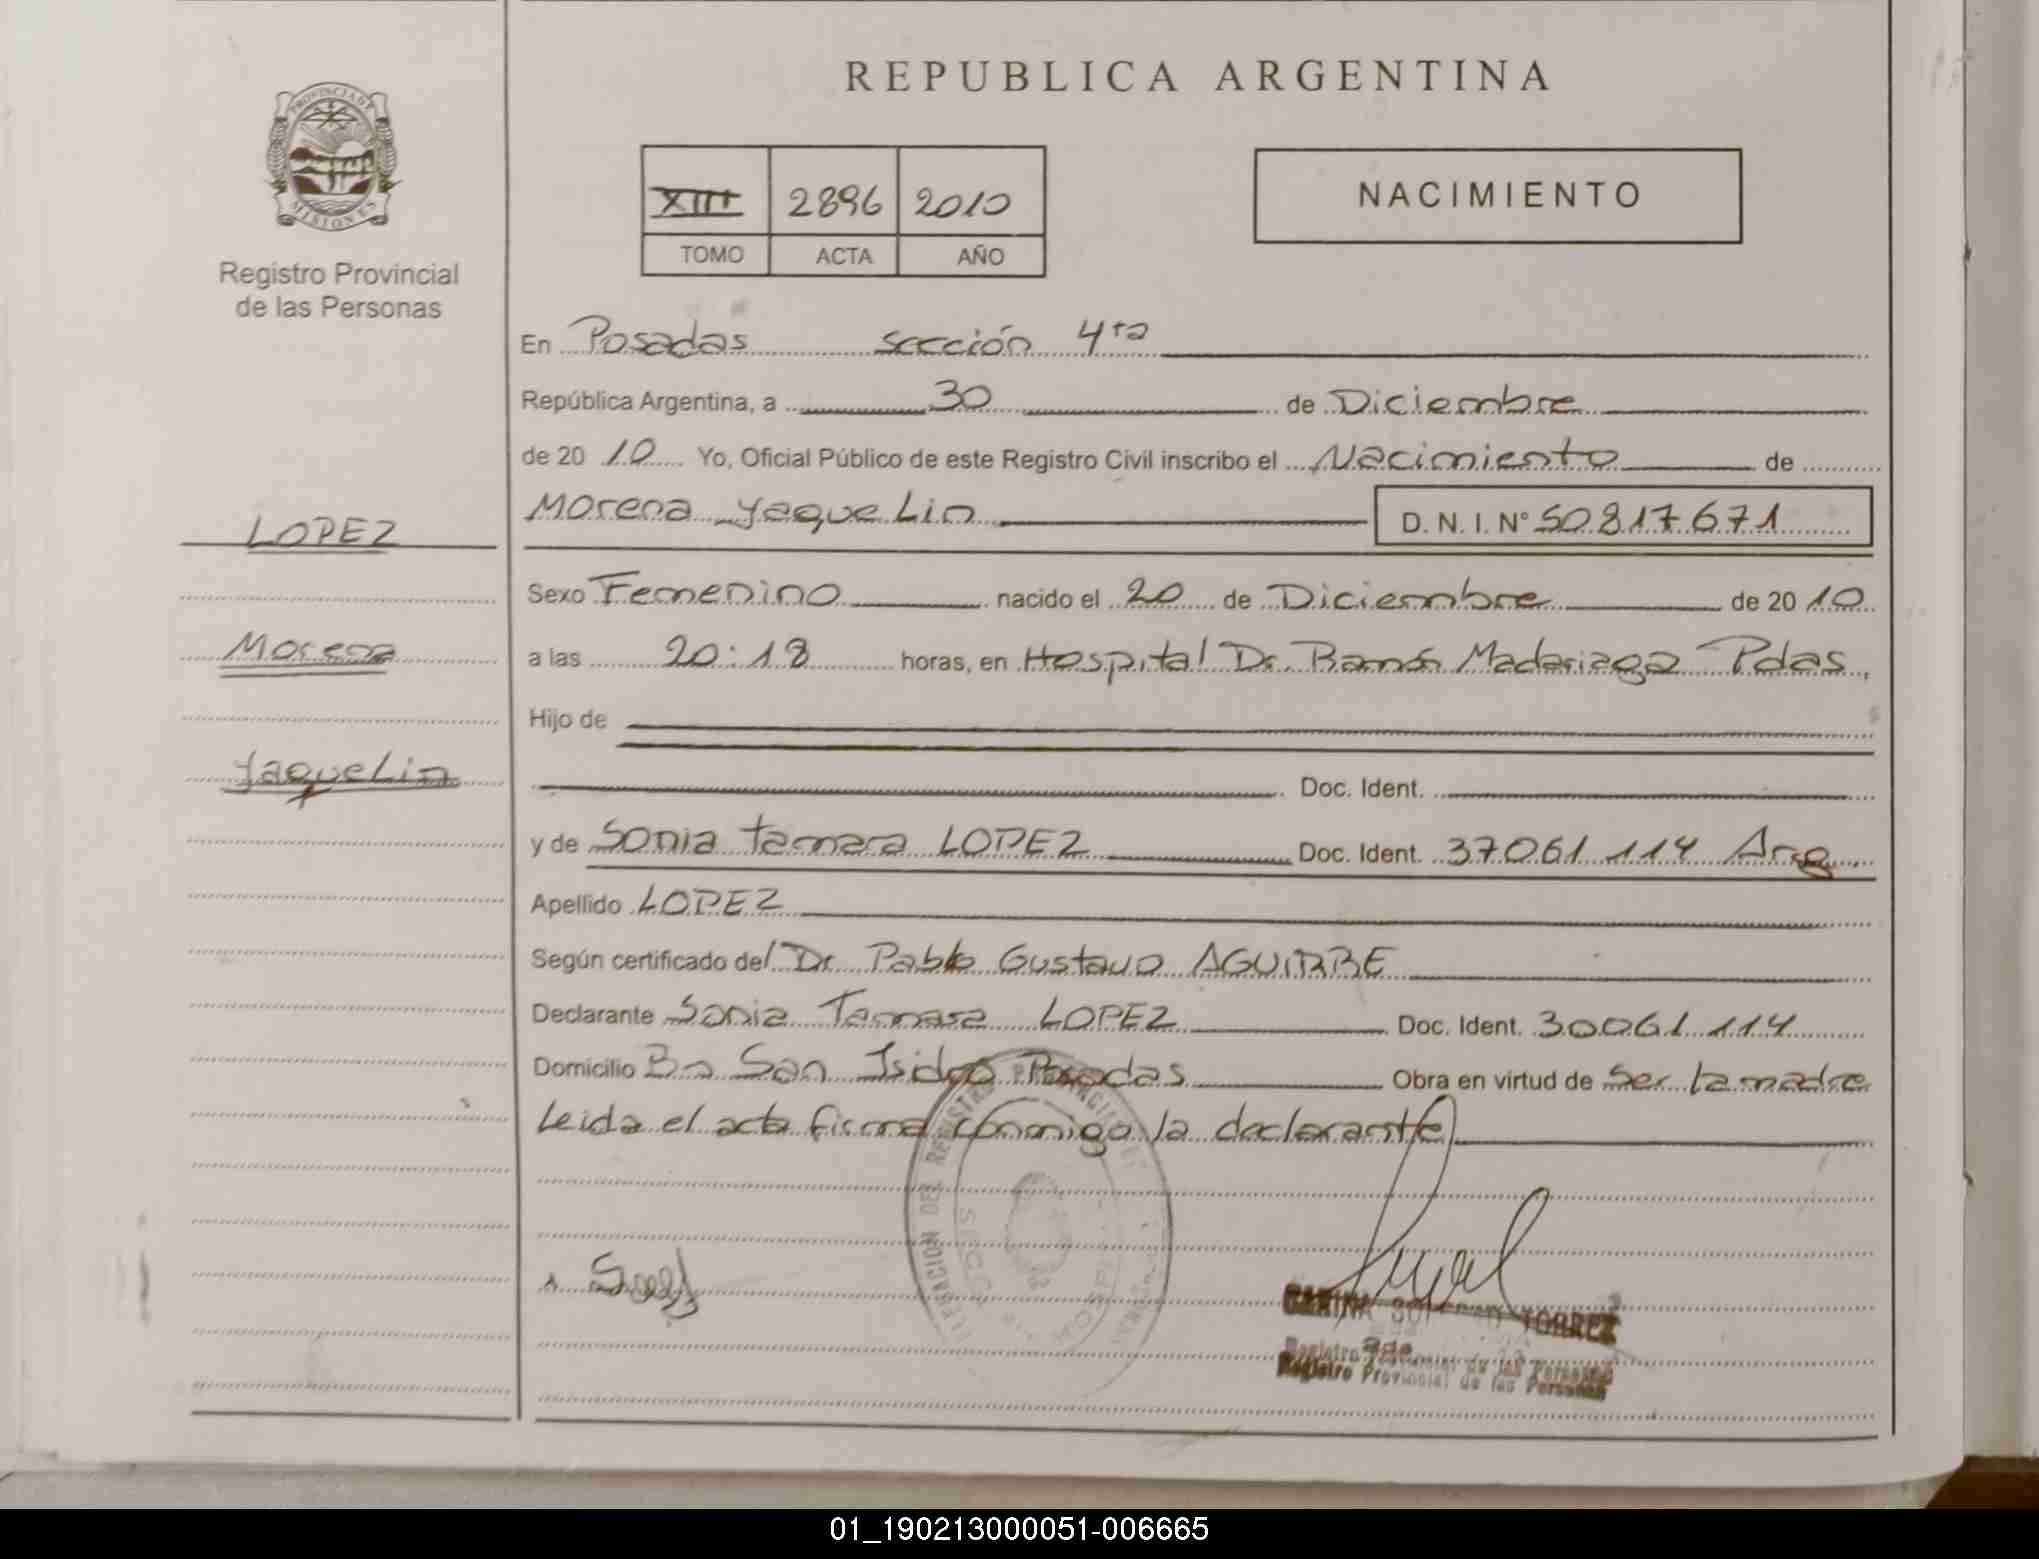 REPUBLICA ARGENTINA
PROVINCIA DE
MISIONES
Registro Provincial
de las Personas
XIII 2896 2010
TOMO ACTA AÑO
NACIMIENTO
En Posadas sección 4ta
República Argentina, a 30 de Diciembre
de 20 10 Yo, Oficial Público de este Registro Civil inscribo el Nacimiento de
Morena YaqueLin D. N. I. N° 50817671
LOPEZ
Morena
YaqueLin
Sexo Femenino nacido el 20 de Diciembre de 20 10
a las 20:18 horas, en Hospital Dr. Ramón Madariaga Pdas,
Hijo de
Doc. Ident.
y de Sonia Tamara LOPEZ Doc. Ident. 37061114 Arg.
Apellido LOPEZ
Según certificado del Dr Pablo Gustavo AGUIRRE
Declarante Sonia Tamara LOPEZ Doc. Ident. 30061114
Domicilio Bo San Isidro Posadas Obra en virtud de Ser la madre
Leida el acta firma conmigo la declarante
TORREZ
Registro Provincial de las Personas
01_190213000051-006665